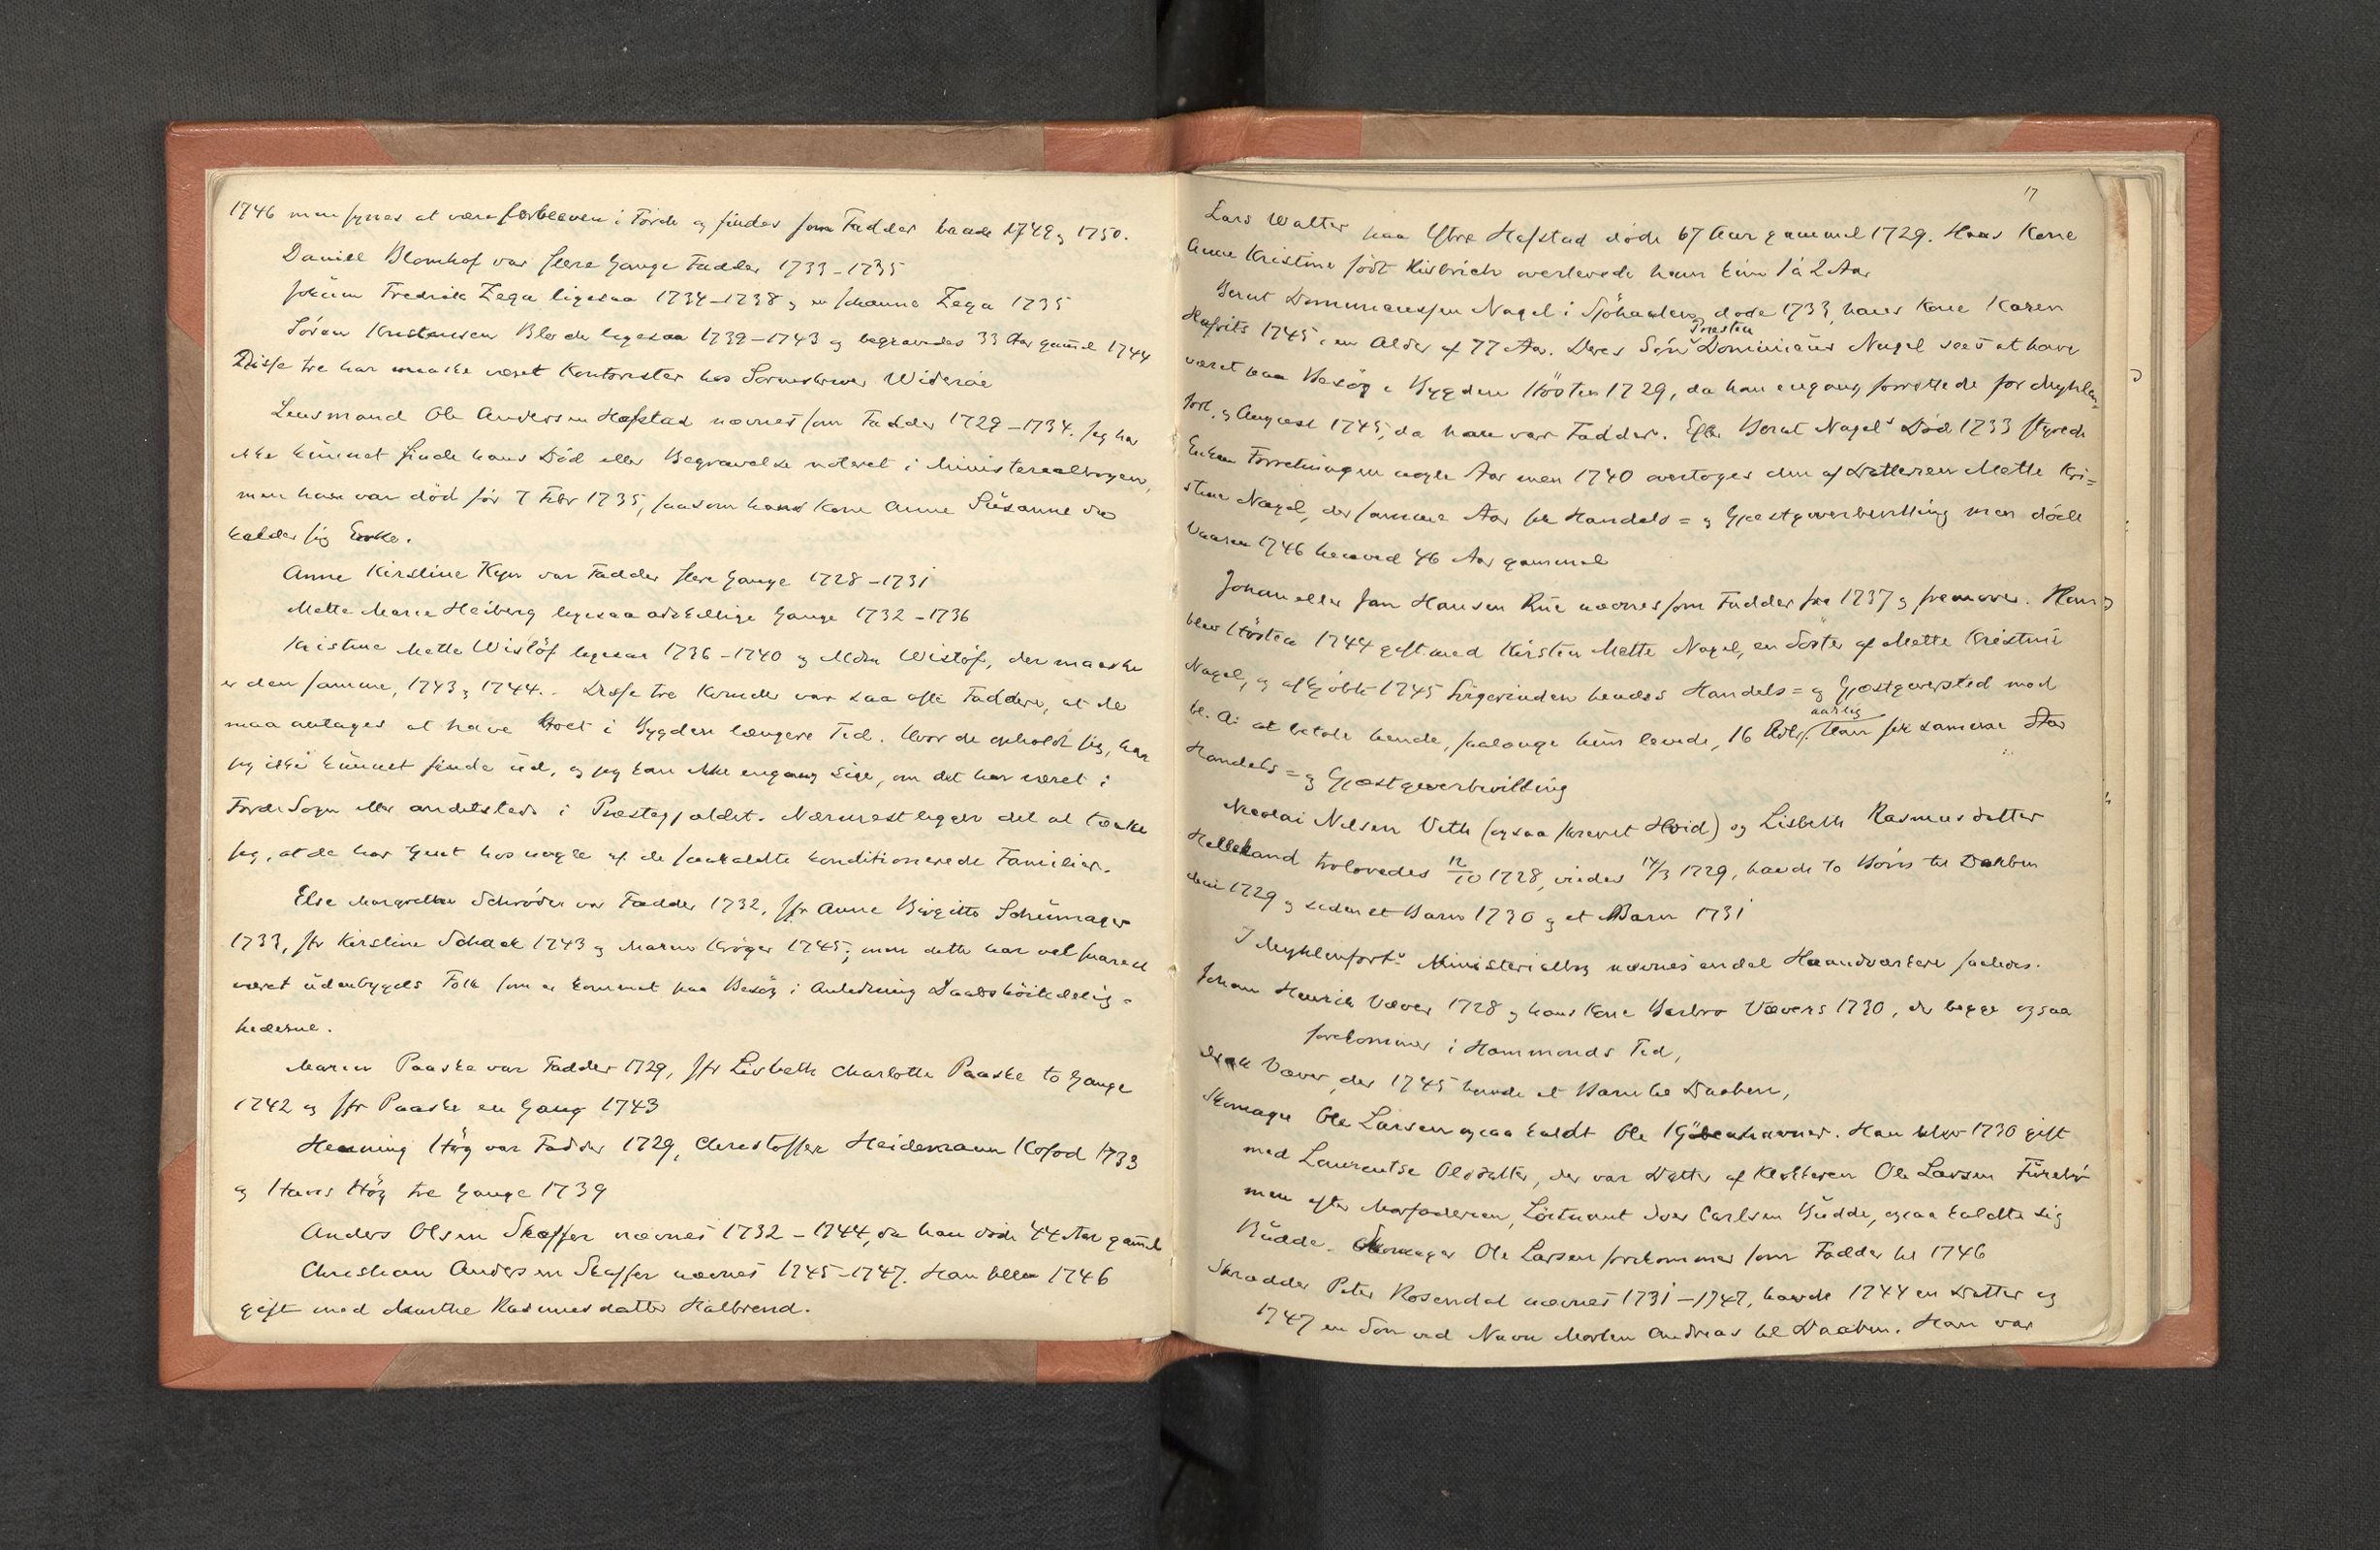 1746 men synes at være forbleven i Förde og findes som Fadder baade 1749 og 1750.
Daniel Blomhof var flere Gange Fadder 1733-1735
Jokum Fredrik Zega ligesaa 1734-1738 og en Johanna Zega 1735
Sören Kristensen Bloch ligesaa 1739-1743 og begravedes 33 Aar gammel 1744
Disse tre har maaske været Kontorister hos Sorenskriver Wideröe
Lensmand Ole Andersen Hafstad nævnes som Fadder 1729-1734. Jeg har
ikke kunnet finde hans Död eller Begravelse noteret i Ministerialbogen,
men han var död för 7 Febr 1735, saasom hans Kone Anne Susanne da
kalder sig Enke.
Anne Kirstine Keyn var Fadder flere Gange 1728-1731
Mette Marie Heiberg ligesaa adskillige Gange 1732-1736
Kristine Mette Wislöf ligesaa 1736-1740 og Mdm Wislöf, der maaske
er den samme, 1743 og 1744. - Disse tre Kvinder var saa ofte Faddere, at de
maa antages at have boet i Bygden længere Tid. Hvor de opholdt sig, har
jeg ikke kunnet finde ud, og jeg kan ikke engang sige, om det har været i
Förde Sogn eller andetsteds i Præstegjældet. Nærmest ligger det at tænke
sig, at de har tjent hos nogle af de saakaldte konditionerede Familier.
Else Margrethe Schröder var Fadder 1732, Jfr Anne Birgitte Schumager
1733, Jfr Kirstine Schack 1743 og Maren Kröger 1745; men dette har vel snarest
været udenbygds Folk som er kommet paa Besög i Anledning Daabshöitidelig-
hederne.
Maren Paaske var Fadder 1729, Jfr Lisbeth Charlotte Paaske to Gange
1742 og Jfr Paaske en Gang 1743
Henning Hög var Fadder 1729, Christoffer Heidemann Kofod 1733
og Hans Hög tre Gange 1739
Anders Olsen Skaffer nævnes 1732-1744, da han döde 44 Aar gammel
Christian Andersen Skaffer nævnes 1745-1747. Han blev 1746
gift med Marthe Rasmusdatter Halbrend.
17
Lars Walter paa Ytre Hafstad döde 67 Aar gammel 1729. Hans Kone
Anne Kristine födt overlevede ham kun 1 à 2 Aar
Bernt Dominicussen Nagel i Sjöhaalen döde 1733, hans Kone Karen
Hafrits 1745 i en Alder af 77 Aar. Deres Sön Presten Dominicus Nagel sees at have
været paa Besög i Bygden Hösten 1729, da han engang forrettede for Myhlen=
fort, og August 1745, da han var Fadder. Efter Bernt Nagels Död 1733 styrede
Enken Forretningen nogle Aar men 1740 overtoges den af Datteren Mette Kri=
stine Nagel, der samme Aar fik Handels= og Gjæstgiverbevilling men döde
Vaaren 1746 henved 46 Aar gammel
Johan eller Jan Hansen Rue nævnes som Fadder fra 1737 og fremover. Han
blev Hösten 1744 gift med Kirsten Mette Nagel, en Söster af Mette Kristine
Nagel, og afkjöbte 1745 Svigerinden hendes Handels= og Gjæstgiversted mod
bl. A. at betale hende, saalænge hun levede, 16 Rdlr. aarlig Han fik samme Aar
Handels= og Gjæstgiverbevilling
Nicolai Nilsen Veth (ogsaa skrevet Hvid) og Lisbeth Rasmusdatter
Halleland trolovedes 12/10 1728, viedes 14/3 1729, havde to Börn til Daaben
1729 og siden et Barn 1730 og et Barn 1731
I Myhlenforts Ministerialbog nævnes endel Haandværkere saaledes.
Johan Henrik Væver 1728 og hans Kone Barbro Vævers 1730, der begge ogsaa
forekommer i Hammonds Tid,
Væver, der 1745 havde et Barn til Daaben,
Skomager Ole Larsen ogsaa kaldt Ole Kjöbenhavner. Han blev 1730 gift
med Laurentse Olsdatter, der var Datter af Klokkeren Ole Larsen Furebö
men efter Morfaderen, Löitnant Iver Carlsen Budde, ogsaa kaldte sig
Budde. Skomager Ole Larsen forekommer som Fadder til 1746
Skrædder Peter Rosendal nævnes 1731-1747, havde 1744 en Datter og
1747 en Sön ved Navn Morten Andreas til Daaben. Han var